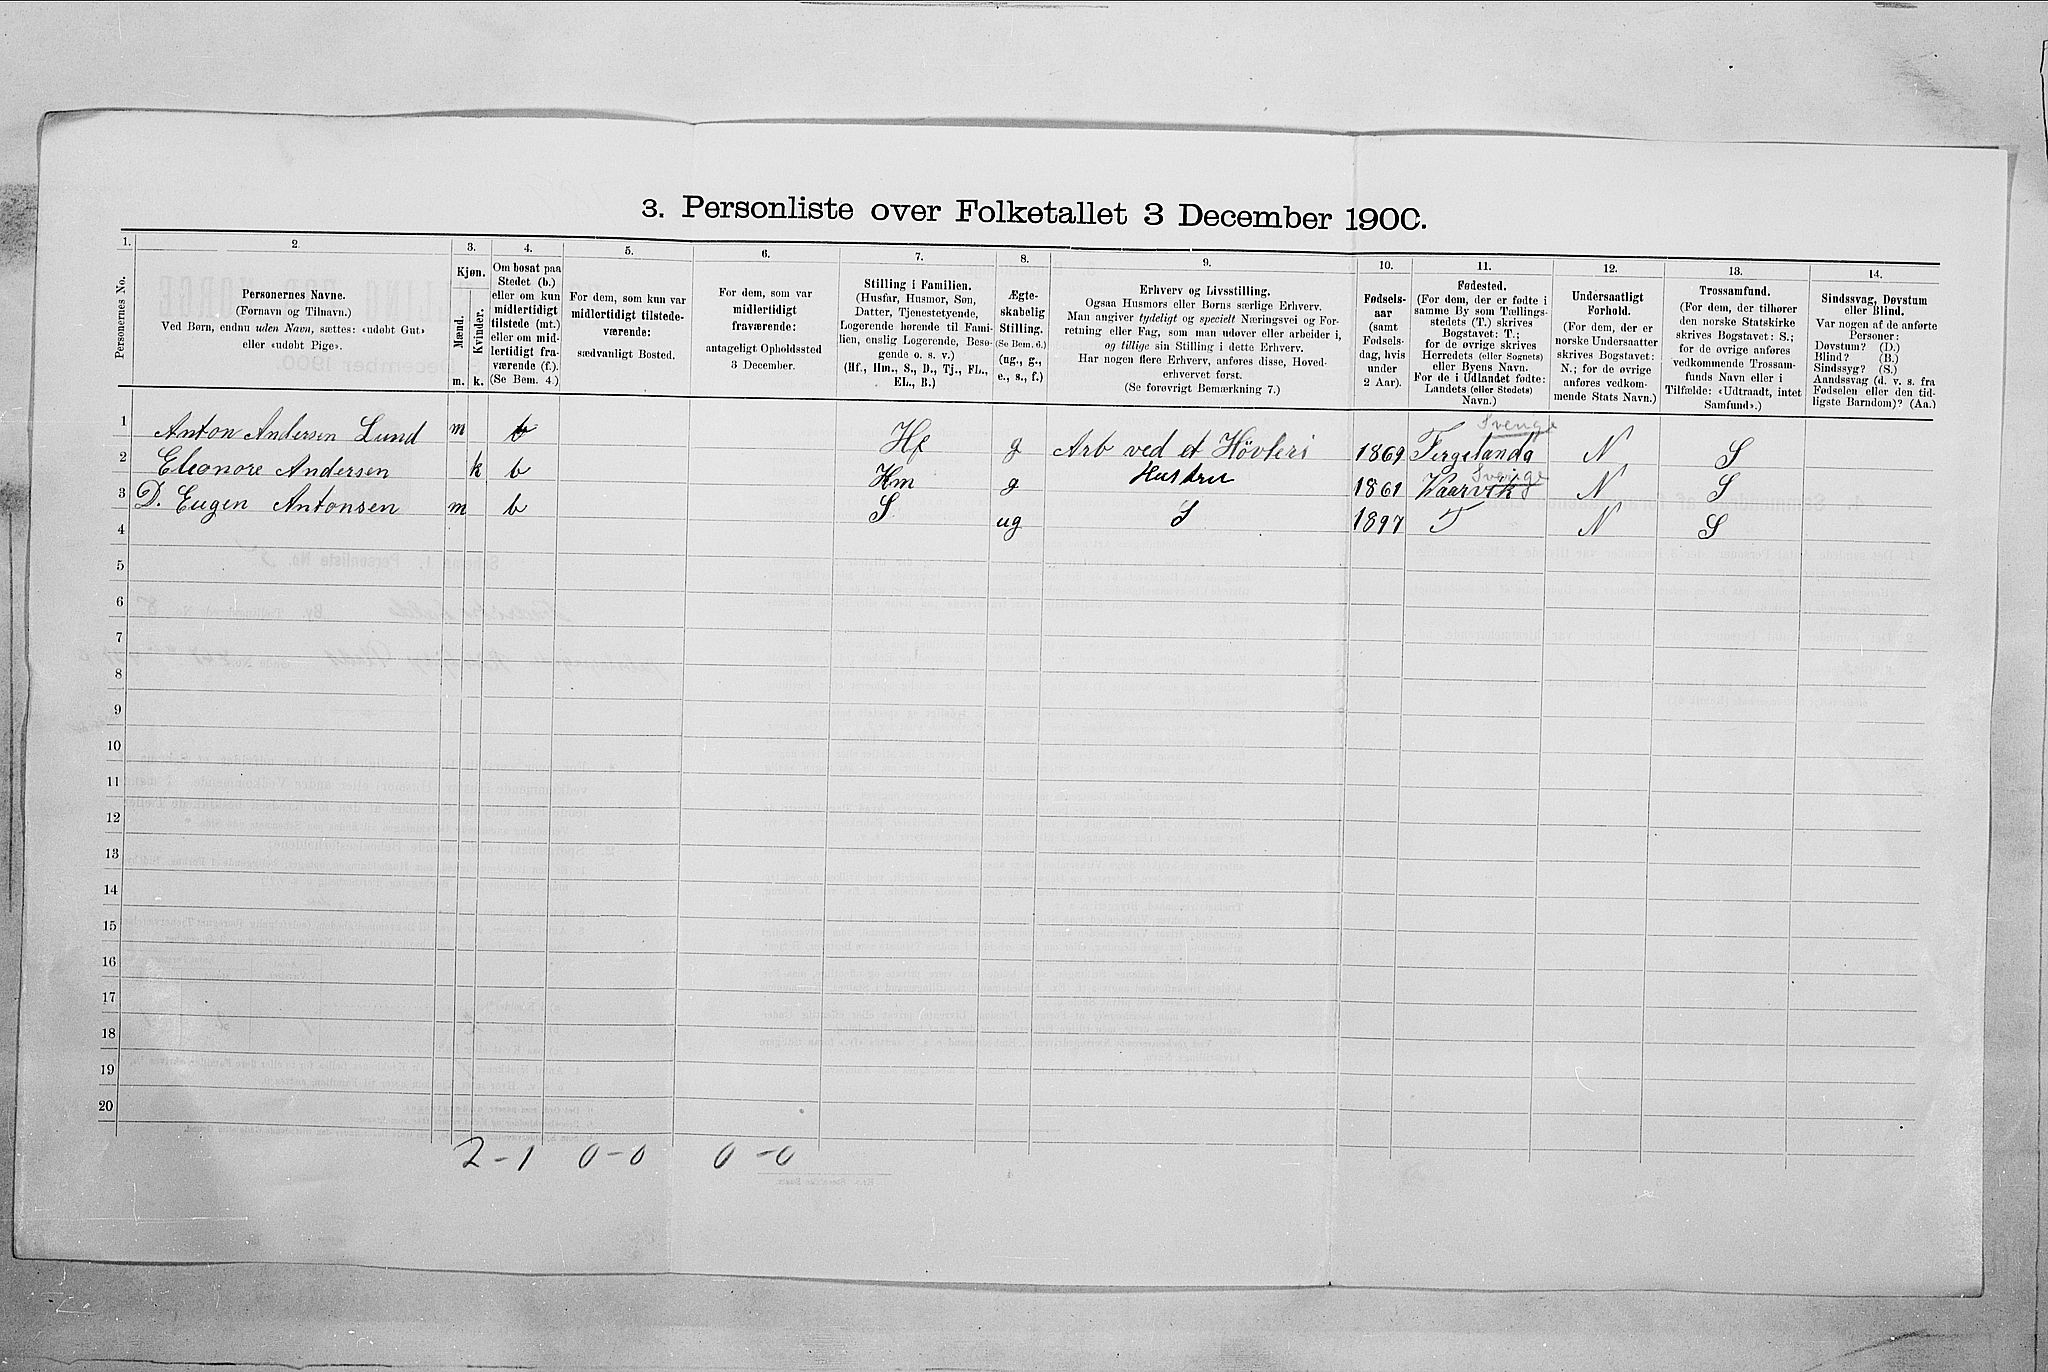 3. Personliste over Folketallet 3 December 1900.
1. 2. 3. 4. 5. 6. 7. 8. 9. 10. 11. 12. 13. 14.
Personernes No.
Personernes Navne.
(Fornavn og Tilnavn.)
Ved Børn, endnu uden Navn, sættes: «udøbt Gut»
eller «udøbt Pige».
Kjøn.
Mænd.
Kvinder.
m. k.
Om bosat paa
Stedet (b.)
eller om kun
midlertidigt
tilstede (mt.)
eller om mid-
lertidigt fra-
værende (f.).
(Se Bem. 4.)
For dem, som kun var
midlertidigt tilstede-
værende:
sædvanligt Bosted.
For dem, som var
midlertidigt
fraværende:
antageligt Opholdssted
3 December.
Stilling i Familien.
(Husfar, Husmor, Søn,
Datter, Tjenestetyende,
Logerende hørende til Fami-
lien, enslig Logerende, Besø-
gende o. s. v.)
(Hf., Hm., S., D., Tj., FL.,
EL., B.)
Ægte-
skabelig
Stilling.
(Se Bem. 6.)
(ug., g.,
e., s., f.)
Erhverv og Livsstilling.
Ogsaa Husmors eller Børns særlige Erhverv.
Man angiver tydeligt og specielt Næringsvei og For-
retning eller Fag, som man udøver eller arbeider i,
og tillige sin Stilling i dette Erhverv.
Har nogen flere Erhverv, anføres disse, Hoved-
erhvervet først.
(Se forøvrigt Bemærkning 7.)
Fødsels-
aar
(samt
Fødsels-
dag, hvis
under
2 Aar).
Fødested.
(For dem, der er fødte i
samme By som Tællings-
stedets (T.) skrives
Bogstavet: T.;
for de øvrige skrives
Herredets (eller Sognets)
eller Byens Navn.
For de i Udlandet fødte:
Landets (eller Stedets)
Navn.)
Undersaatligt
Forhold.
(For dem, der er
norske Undersaatter
skrives Bogstavet:
N.; for de øvrige
anføres vedkom-
mende Stats Navn.)
Trossamfund.
(For dem, der tilhører
den norske Statskirke
skrives Bogstavet: S.;
for de øvrige anføres
vedkommende Trossam-
funds Navn eller i
Tilfælde: «Udtraadt, intet
Samfund».)
Sindssvag, Døvstum
eller Blind.
Var nogen af de anførte
Personer:
Døvstum? (D.)
Blind? (B.)
Sindssyg? (S.)
Aandssvag (d. v. s. fra
Fødselen eller den tid-
ligste Barndom)? (Aa.)
Sverige
1 Anton Andersen Lund m b Hf g Arb ved et Hövleri 1869 Fergelanda N S
Sverige
2 Eleonore Andersen k b Hm g Hustru 1861 Kaarvik N S
3 D. Eugen Antonsen m b S ug S 1897 T N S
4
5
6
7
8
9
10
11
12
13
14
15
16
17
18
19
20
2-1 0-0 0-0